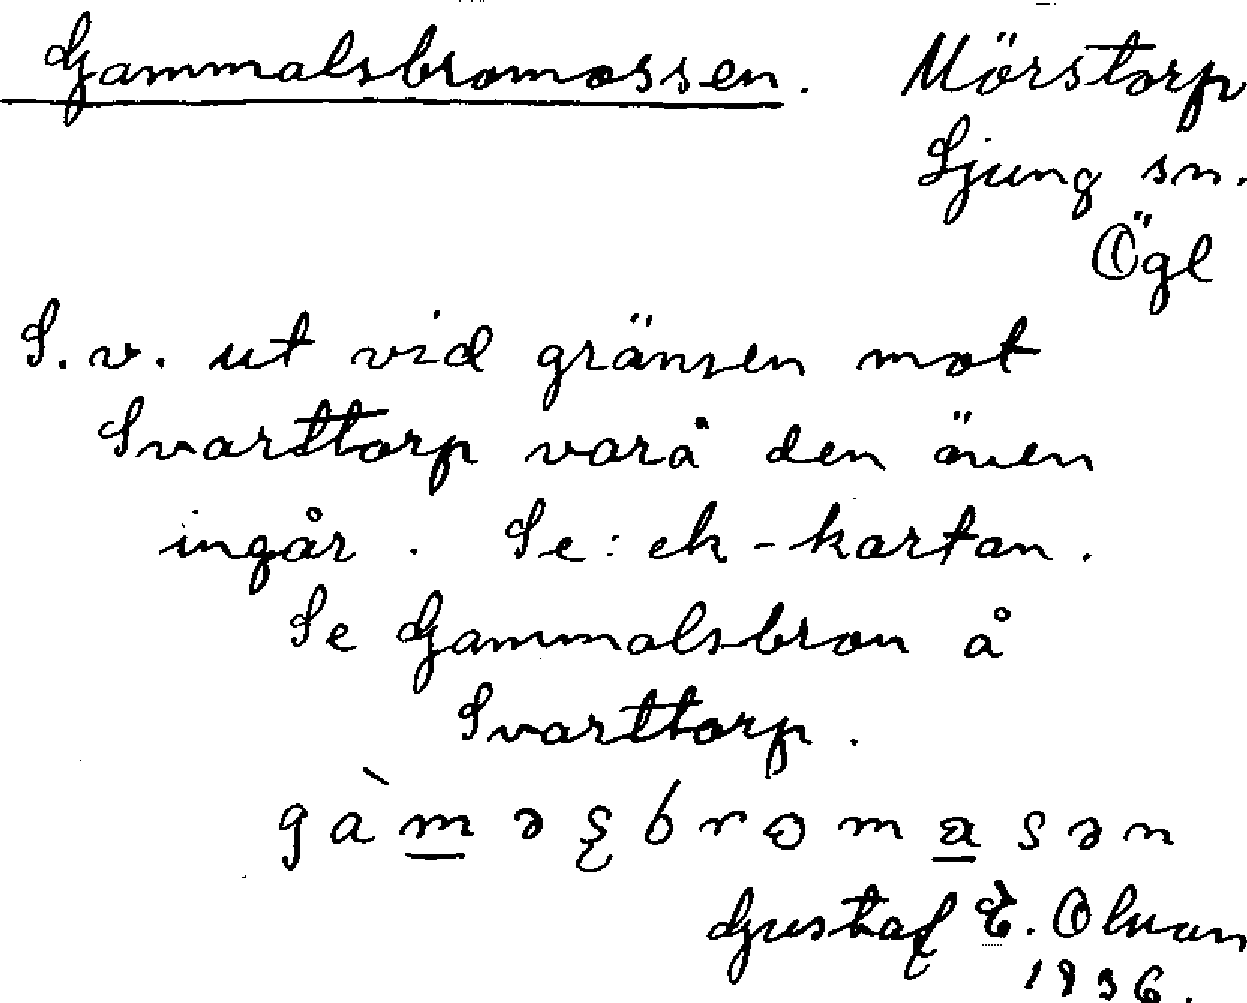 Gammalsbromossen. Mörstorp
Ljung sn.
Ögl
S.v. ut vid gränsen mot
Svarttorp varå den även
ingår. Se: ek-kartan.
Se Gammalsbron å
Svarttorp.
Gustaf E.
1936.